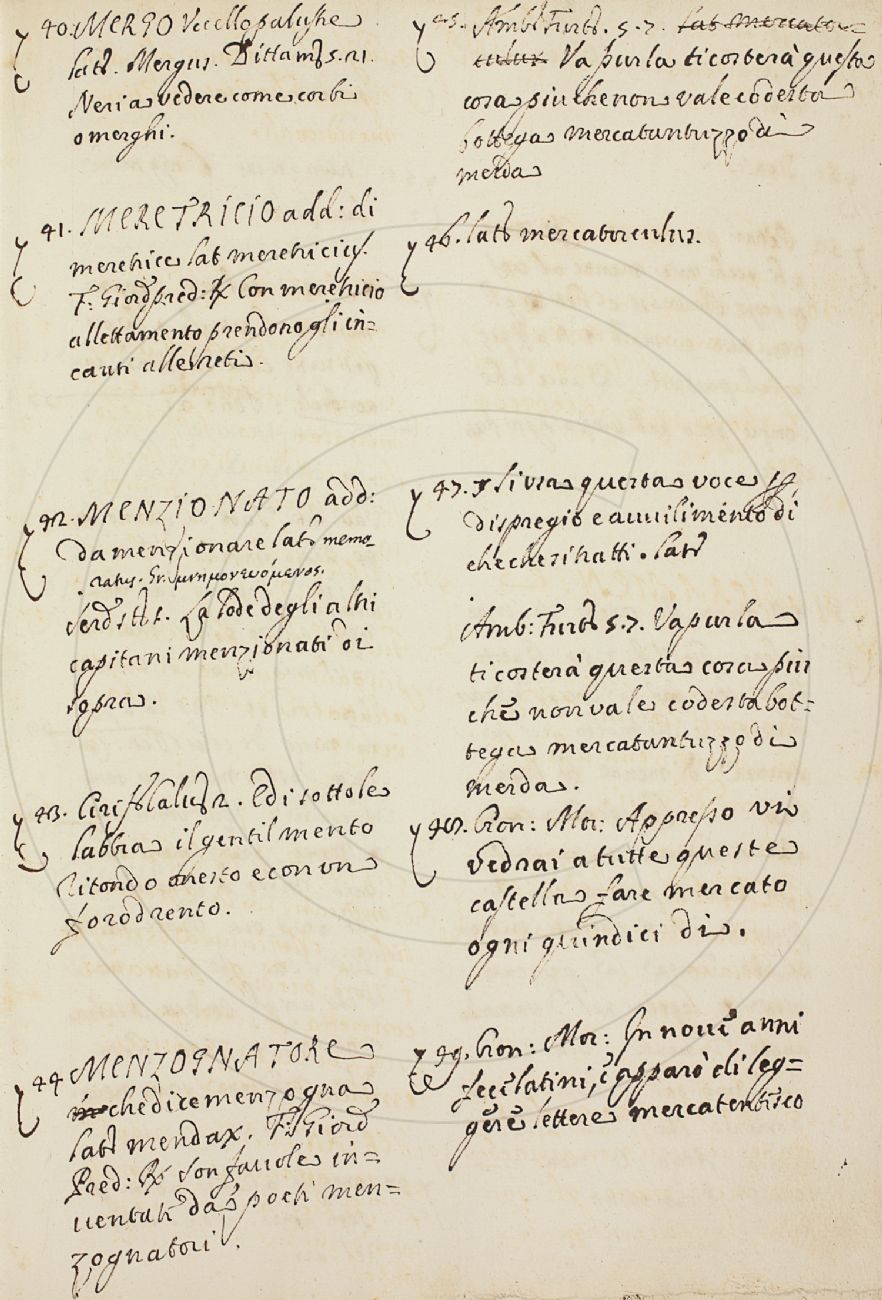 40. MERGO Vccello palustre
lat. Mergus. Dittam. 5. 21.
Neri a vedere come corbi
o merghi.
41. MERETRICIO add: di
meretrice lat meretricius.
F. Giord pred: R Con meretricio
allettamento prendono gli in=
cauti alle reti.
42. MENZIONATO add:
da menzionare lat memo
ratus. Gr. μνημονευόμενος.
Serd. st. 1. La lode degli altri
capitani menzionati di
sopra.
43. Cirif. Calu. 2. Ed i sottole
labbia il gentil mento
Ritondo onesto e con vn
foro drento.
44 MENZOGNATORE
che dice menzogna
lat mendax. F. Giord
Pred: R Son fauole in=
uentate da poeti men=
zognatori.
45. Amb: Furt. 5. 7. lat mercator=
culux Va pur la ti costerà questa
cosa piu che non vale codesta
bottega mercatantuzzo di
merda
46. lat mercatorculus.
47. Si vsa questa voce
dispregio e auuilimento di
che che si tratti. lat
Amb: Furt. 5. 7. Va pur la
ti costerà questa cosa piu
che non vale codesta bot=
tega mercatantuzzo di
merda.
48. Cron: Mor: Appresso vi
vedrai a tutte queste
castella fare mercato
ogni quindici di.
49. Cron: Mor: In noue anni
fece latini, e apparò di leg=
gere lettere mercatentisco